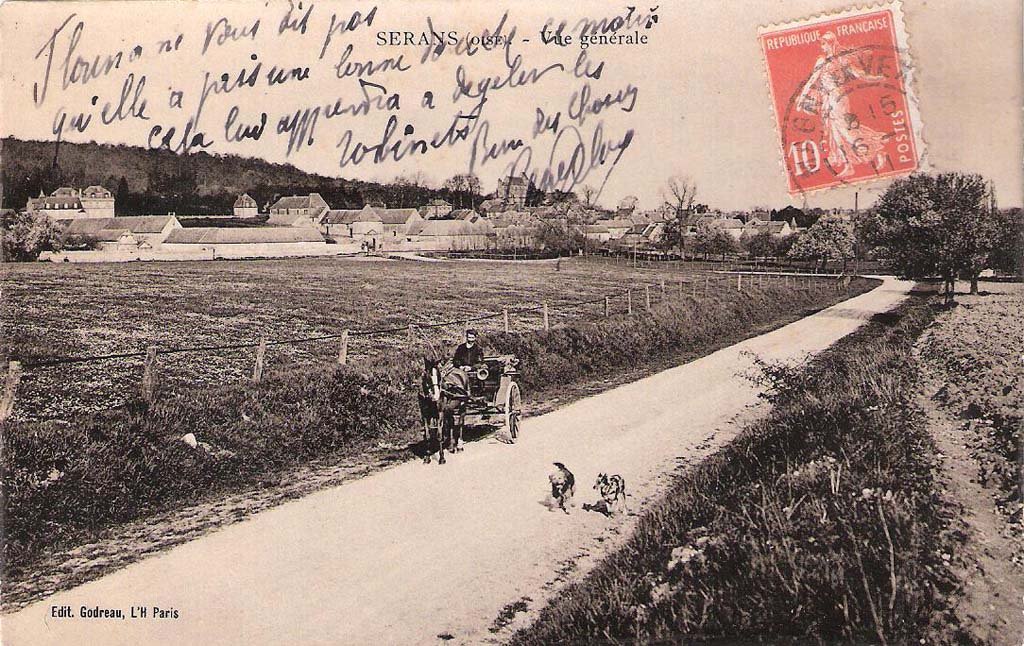 SERANS (OISE) - Vue générale
Floura ne vous dit pas
qu'elle a pris une bonne douche ce matin
cela lui apprendra a degeler les
robinets Bien des choses
REPUBLIQUE FRANÇAISE
10c
POSTES
Edit. Godreau, L'H Paris